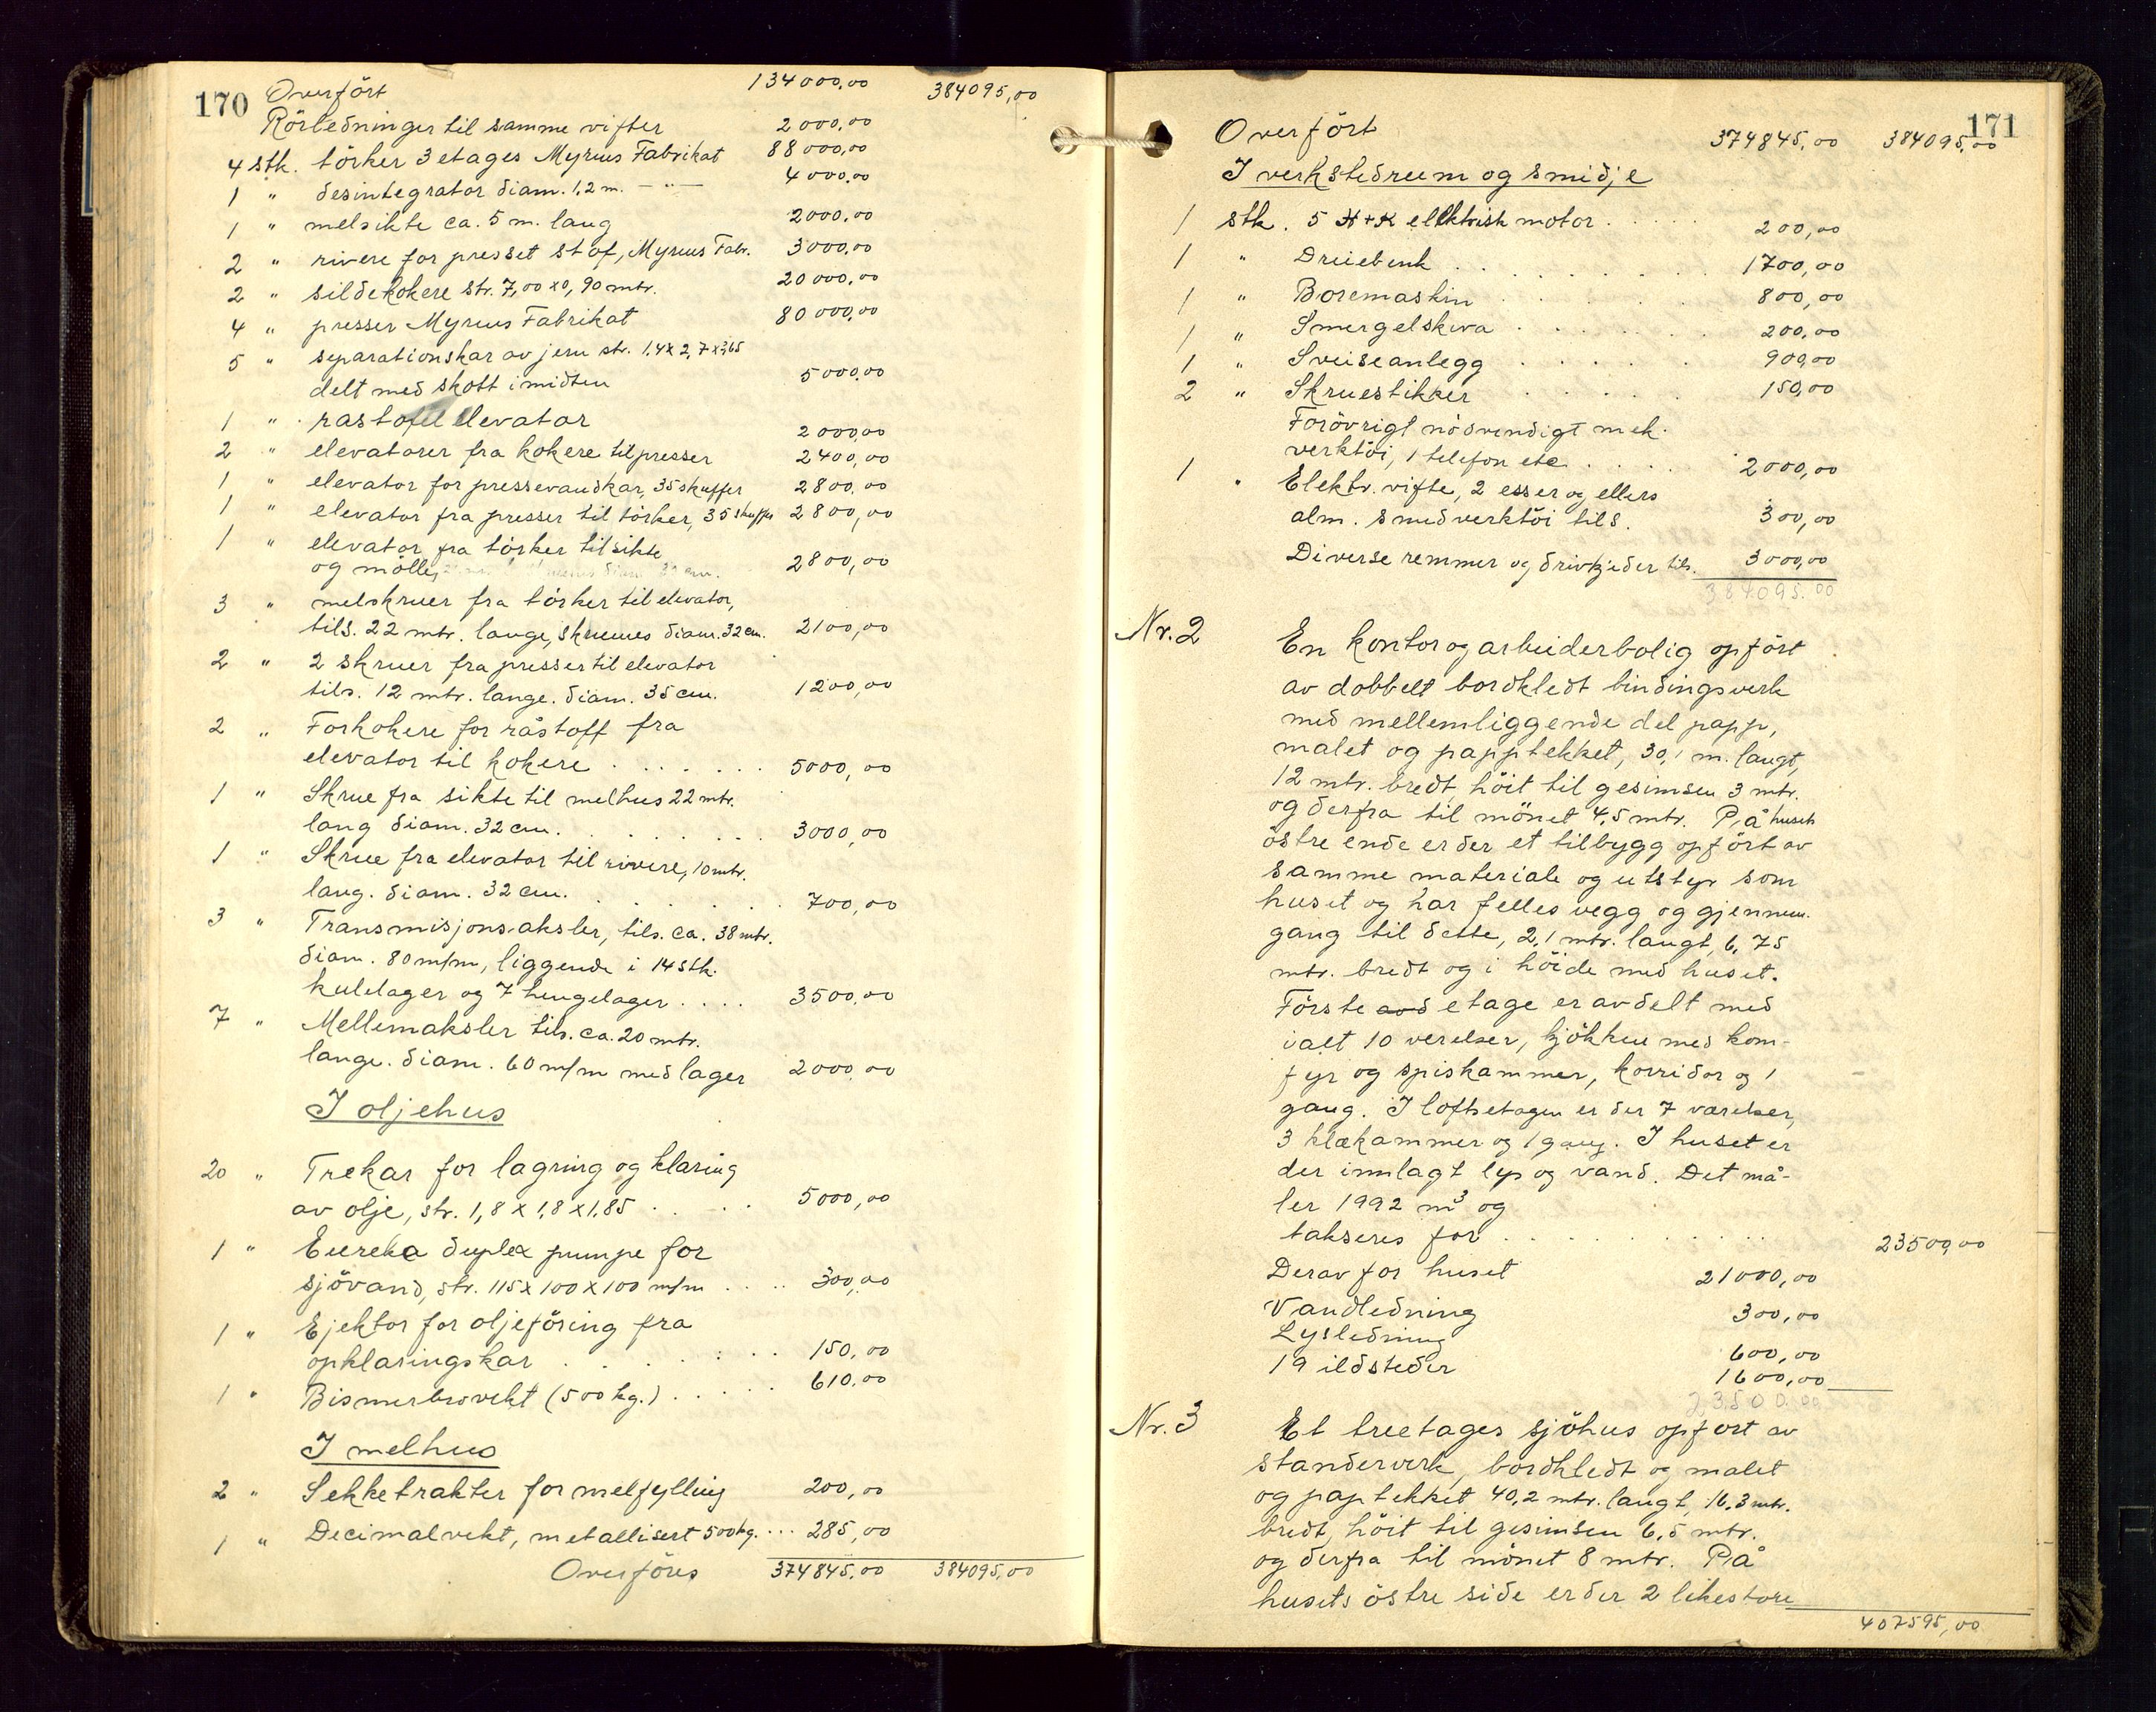 170 Overført 134000,00 384095,00
Rörledninger til samme vifter 2000,00
4 stk. törker 3 etages Myrens Fabrikat 88000,00
1 " desintegrator diam. 1,2 m. — " — 4000,00
1 " melsikte ca. 5 m. lang 2000,00
2 " rivere for presset stof, Myrens Fabr. 3000,00
2 " sildekokere str. 7,00 x 0,90 mtr. 20000,00
4 " presser Myrens Fabrikat 80000,00
5 " separationskar av jern str. 1,4 x 2,7 x 3,65
delt med skott i midten 5000,00
1 " rastoff elevator 2000,00
2 " elevatorer fra kokere til presser 2400,00
1 " elevator for pressevandkar, 35 skuffer 2800,00
1 " elevator fra presser til törker, 35 skuffer 2800,00
1 " elevator fra törker til sikte
og mölle, 2800,00
3 " melskruer fra törker til elevator,
tils. 22 mtr. lange, skruenes diam. 32 cm. 2100,00
2 " 2 skruer fra presser til elevator
tils. 12 mtr. lange. diam. 35 cm. 1200,00
2 " Forkokere for råstoff fra
elevator til kokere . . . . . . 5000,00
1 " Skrue fra sikte til melhus 22 mtr.
lang diam. 32 cm. . . . . . . . 3000,00
1 " Skrue fra elevator til rivere, 10 mtr.
lang. diam. 32 cm. . . . . . . . 700,00
3 " Transmisjons-aksler, tils. ca. 38 mtr.
diam. 80 m/m, liggende i 14 stk.
kulelager og 7 hengelager . . . . 3500,00
7 " Mellemaksler tils. ca. 20 mtr.
lange. diam. 60 m/m med lager 2000,00
I oljehus
20 " Trekar for lagring og klaring
av olje, str. 1,8 x 1,8 x 1,85 . . . . 5000,00
1 " Eureka duplex pumpe for
sjövand, str. 115 x 100 x 100 m/m . . . . 300,00
1 " Ejektor for oljeföring fra
opklaringskar . . . . . . . 150,00
1 " Bismerbrovekt (500 kg.) . . . . . 610,00
I melhus
2 " Sekketrakter for melfylling 200,00
1 " Decimalvekt, metallisert 500 kg. . . . 285,00
Overföres 374845,00 384095,00
171
Overfört 374845,00 384095,00
I verkstedrum og smidje
1 stk. 5 H+K elektrisk motor . . . . 200,00
1 " Dreiebenk . . . . . . . . 1700,00
1 " Boremaskin . . . . . . 800,00
1 " Smergelskiva . . . . . . 200,00
1 " Sveiseanlegg . . . . . 900,00
2 " Skruestikker . . . . . 150,00
Forövrigt nödvendigt mek.
verktöi, 1 telefon etc . . . . 2000,00
1 " Elektr. vifte, 2 esser og ellers
alm. smedverktöi tils. 300,00
Diverse remmer og drivkjeder tils. 3000,00
384095.00
Nr. 2 En kontor og arbeiderbolig opfört
av dobbelt bordkledt bindingsverk
med mellemliggende del papp,
malet og papptekket, 30,1 m. langt,
12 mtr. bredt, höit til gesimsen 3 mtr.
og derfra til mönet 4,5 mtr. På husets
östre ende er der et tilbygg opfört av
samme materiale og utstyr som
huset og har felles vegg og gjennem-
gang til dette, 2,1 mtr. langt, 6,75
mtr. bredt og i höide med huset.
Förste avd etage er avdelt med
ialt 10 verelser, kjökken med kom-
fyr og spiskammer, korridor og 1
gang. I loftsetagen er der 7 værelser,
3 klækammer og 1 gang. I huset er
der innlagt lys og vand. Det må-
ler 1992 m³ og
takseres for . . . . . . . . . . 23500,00
Derav for huset 21000,00
Vandledning 300,00
Lysledning 600,00
19 ildsteder 1600,00
23500.00
Nr. 3 Et treetages sjöhus opfört av
standerverk, bordkledt og malet
og paptekket 40,2 mtr. langt, 16,3 mtr.
bredt, höit til gesimsen 6,5 mtr.
og derfra til mönet 8 mtr. På
husets östre side er der 2 likestore
407595,00